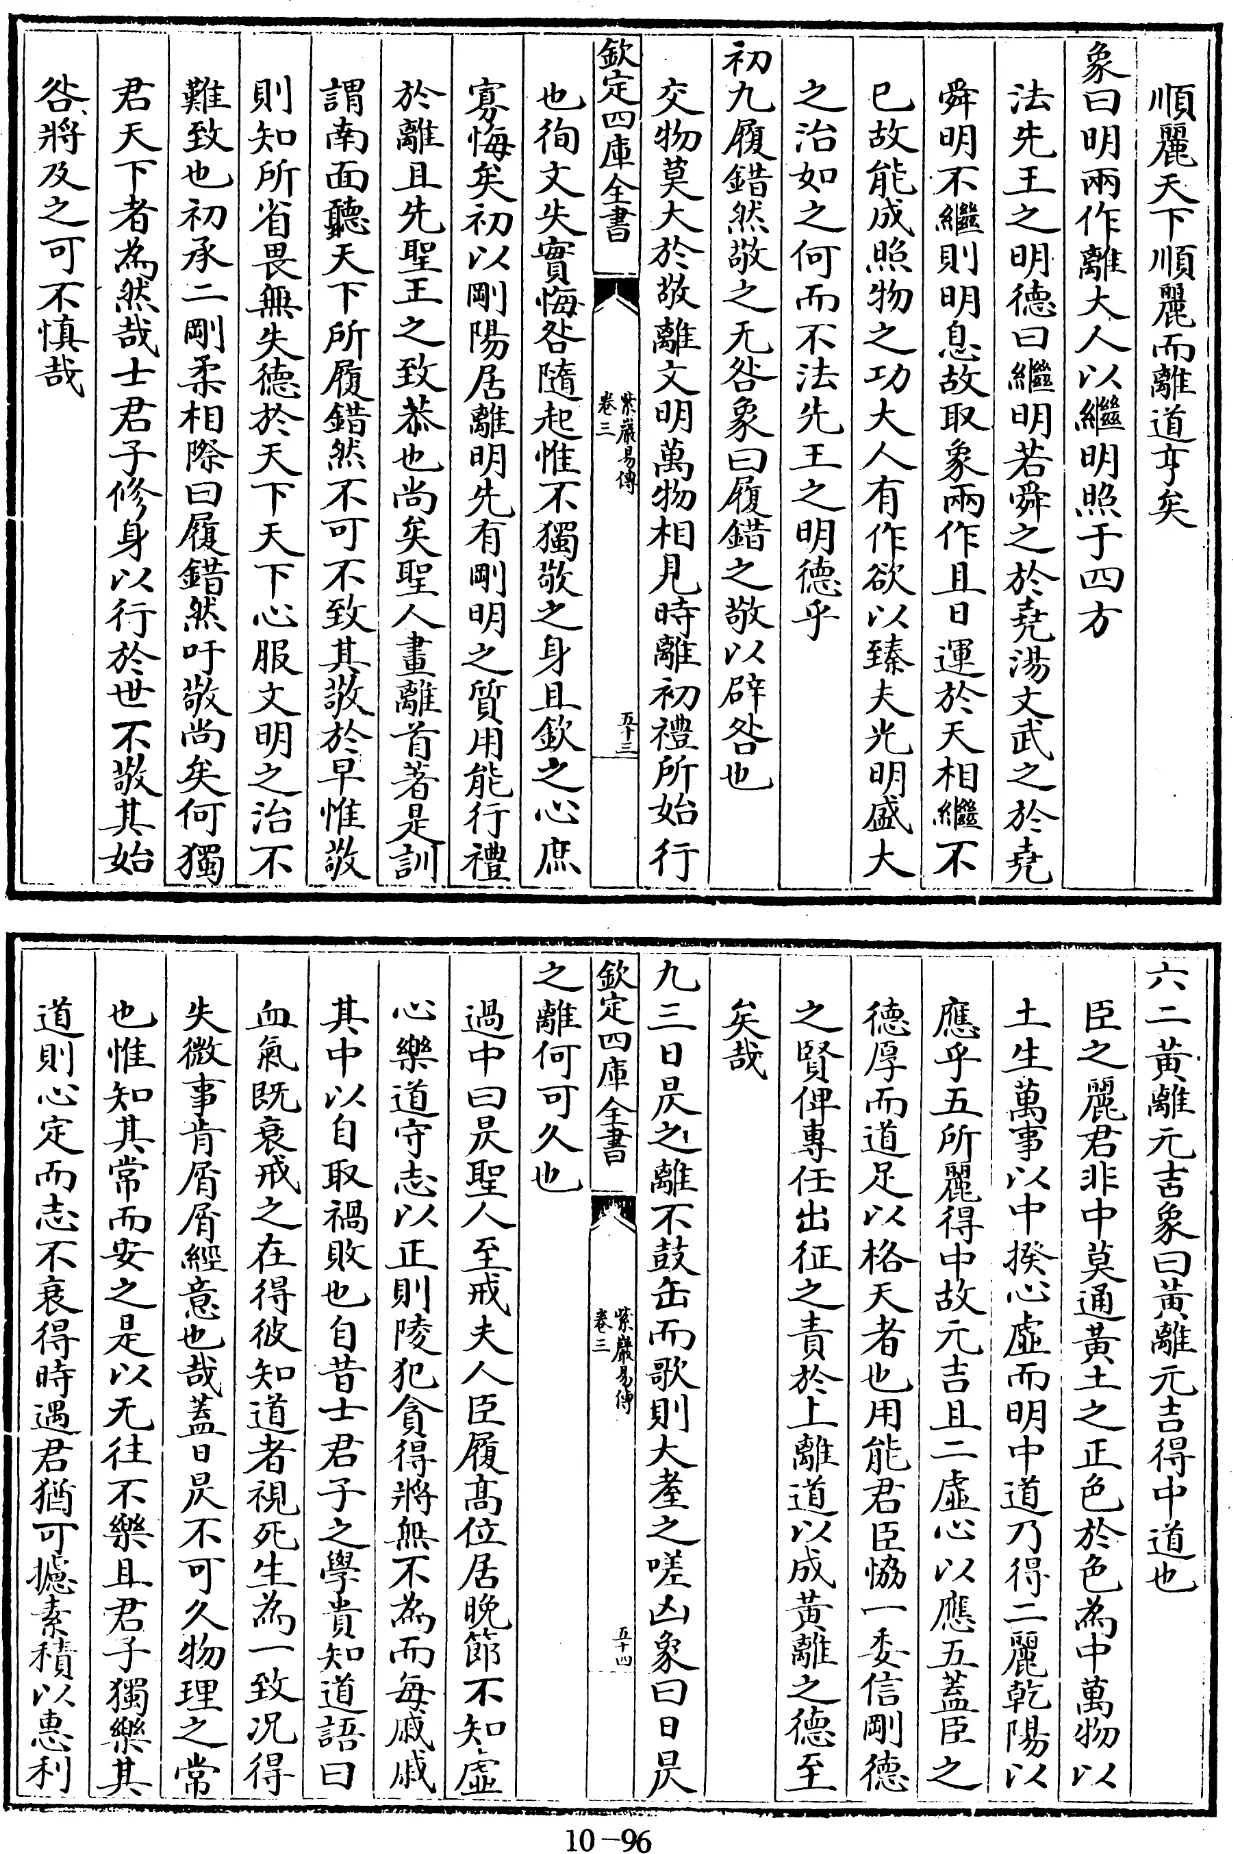 順麗天下順麗而離道亨矣
象曰明兩作離大人以繼明照于四方
法先王之明德曰繼明若舜之於堯湯文武之於堯
舜明不繼則明息故取象兩作且日運於天相繼不
已故能成照物之功大人有作欲以臻夫光明盛大
之治如之何而不法先王之明德乎
初九履錯然敬之无咎象曰履錯之敬以辟咎也
交物莫大於敬離文明萬物相見時離初禮所始行
欽定四庫全書
紫巖易傳
卷三
五十三
也徇文失實悔咎隨起惟不獨敬之身且欽之心庶
寡悔矣初以剛陽居離明先有剛明之質用能行禮
於離且先聖王之致恭也尚矣聖人畫離首著是訓
謂南面聽天下所履錯然不可不致其敬於早惟敬
則知所省畏無失德於天下天下心服文明之治不
難致也初承二剛柔相際曰履錯然吁敬尚矣何獨
君天下者為然哉士君子修身以行於世不敬其始
咎將及之可不慎哉
六二黃離元吉象曰黃離元吉得中道也
臣之麗君非中莫通黃土之正色於色為中萬物以
土生萬事以中揆心虛而明中道乃得二麗乾陽以
應乎五所麗得中故元吉且二虛心以應五蓋臣之
德厚而道足以格天者也用能君臣恊一委信剛德
之賢俾專任出征之責於上離道以成黃離之德至
矣哉
九三日昃之離不鼓缶而歌則大耋之嗟凶象曰日昃
欽定四庫全書
紫巖易傳
卷三
五十四
之離何可久也
過中曰昃聖人至戒夫人臣履高位居晚節不知虛
心樂道守志以正則陵犯貪得將無不為而每戚戚
其中以自取禍敗也自昔士君子之學貴知道語曰
血氣既衰戒之在得彼知道者視死生為一致况得
失微事肯屑屑經意也哉蓋日昃不可久物理之常
也惟知其常而安之是以无往不樂且君子獨樂其
道則心定而志不衰得時遇君猶可攄素積以惠利
10-96